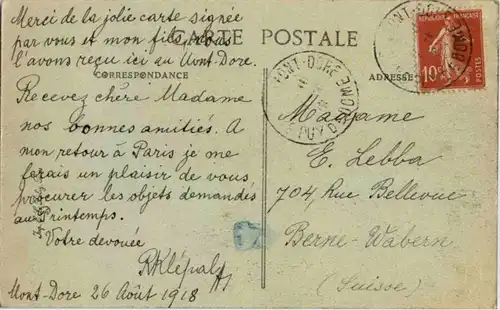 Merci de la jolie carte signée
par vous et mon fils, nous
l'avons reçu ici au Mont-Dore.
CARTE POSTALE
CORRESPONDANCE
Recevez chère Madame
nos bonnes amitiés. A
mon retour à Paris je me
ferais un plaisir de vous
procurer les objets demandés
au Printemps.
Votre dévouée
Mont-Dore 26 Août 1918
ADRESSE
Madame
E. Lebba
704, Rue Bellevue
Berne-Wabern
(Suisse)
MONT-DORE
PUY DE DOME
REPUBLIQUE FRANÇAISE
10c
POSTES